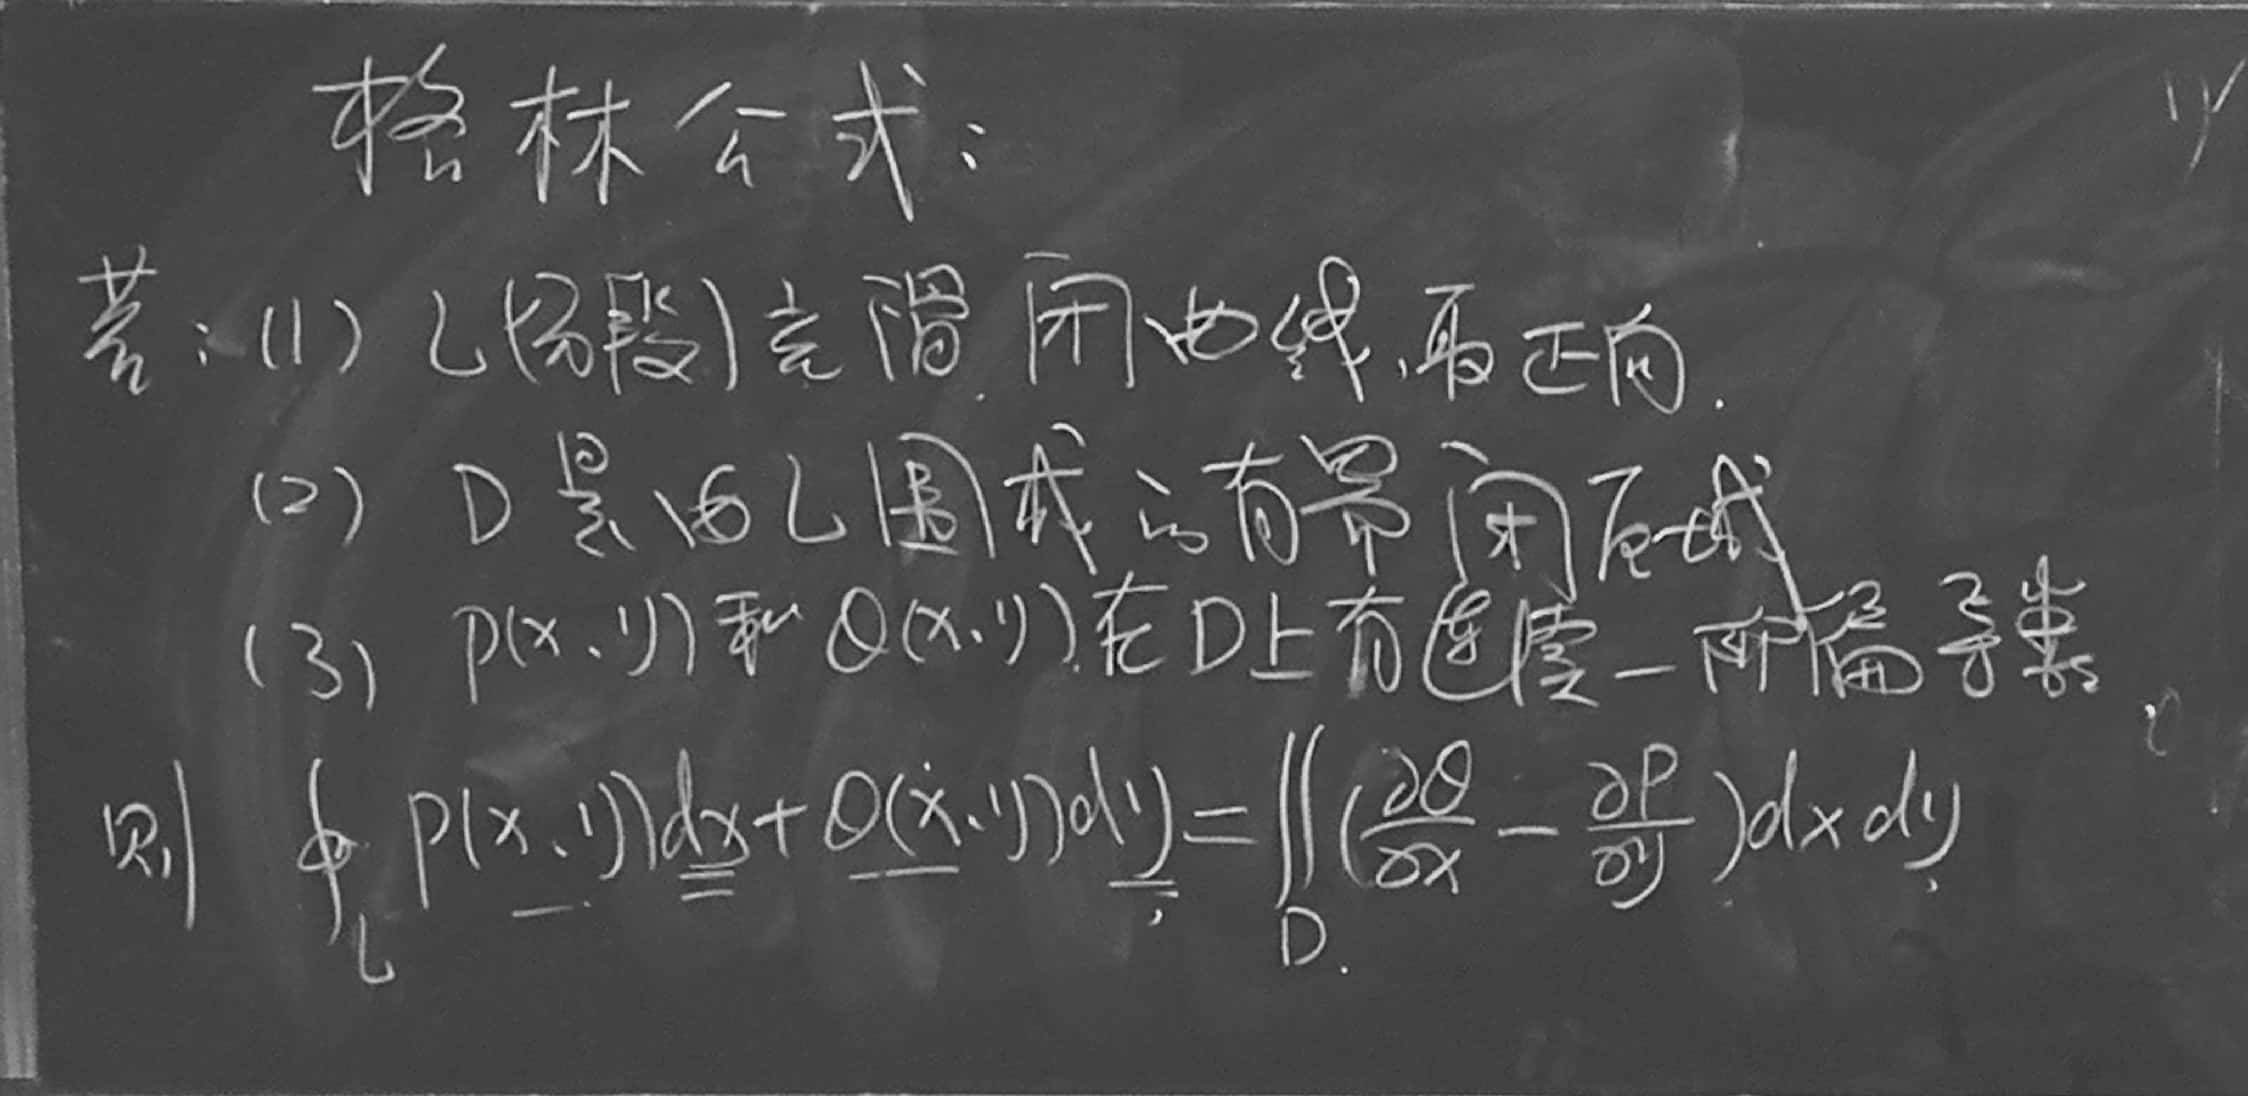 格林公式:
若:(1) L(分段)光滑闭曲线,取正向.
(2) D是由L围成的有界闭区域
(3) P(x,y)和Q(x,y)在D上有连续一阶偏导数
则 ∮_L P(x,y)dx+Q(x,y)dy=∬_D(∂Q/∂x-∂P/∂y)dxdy